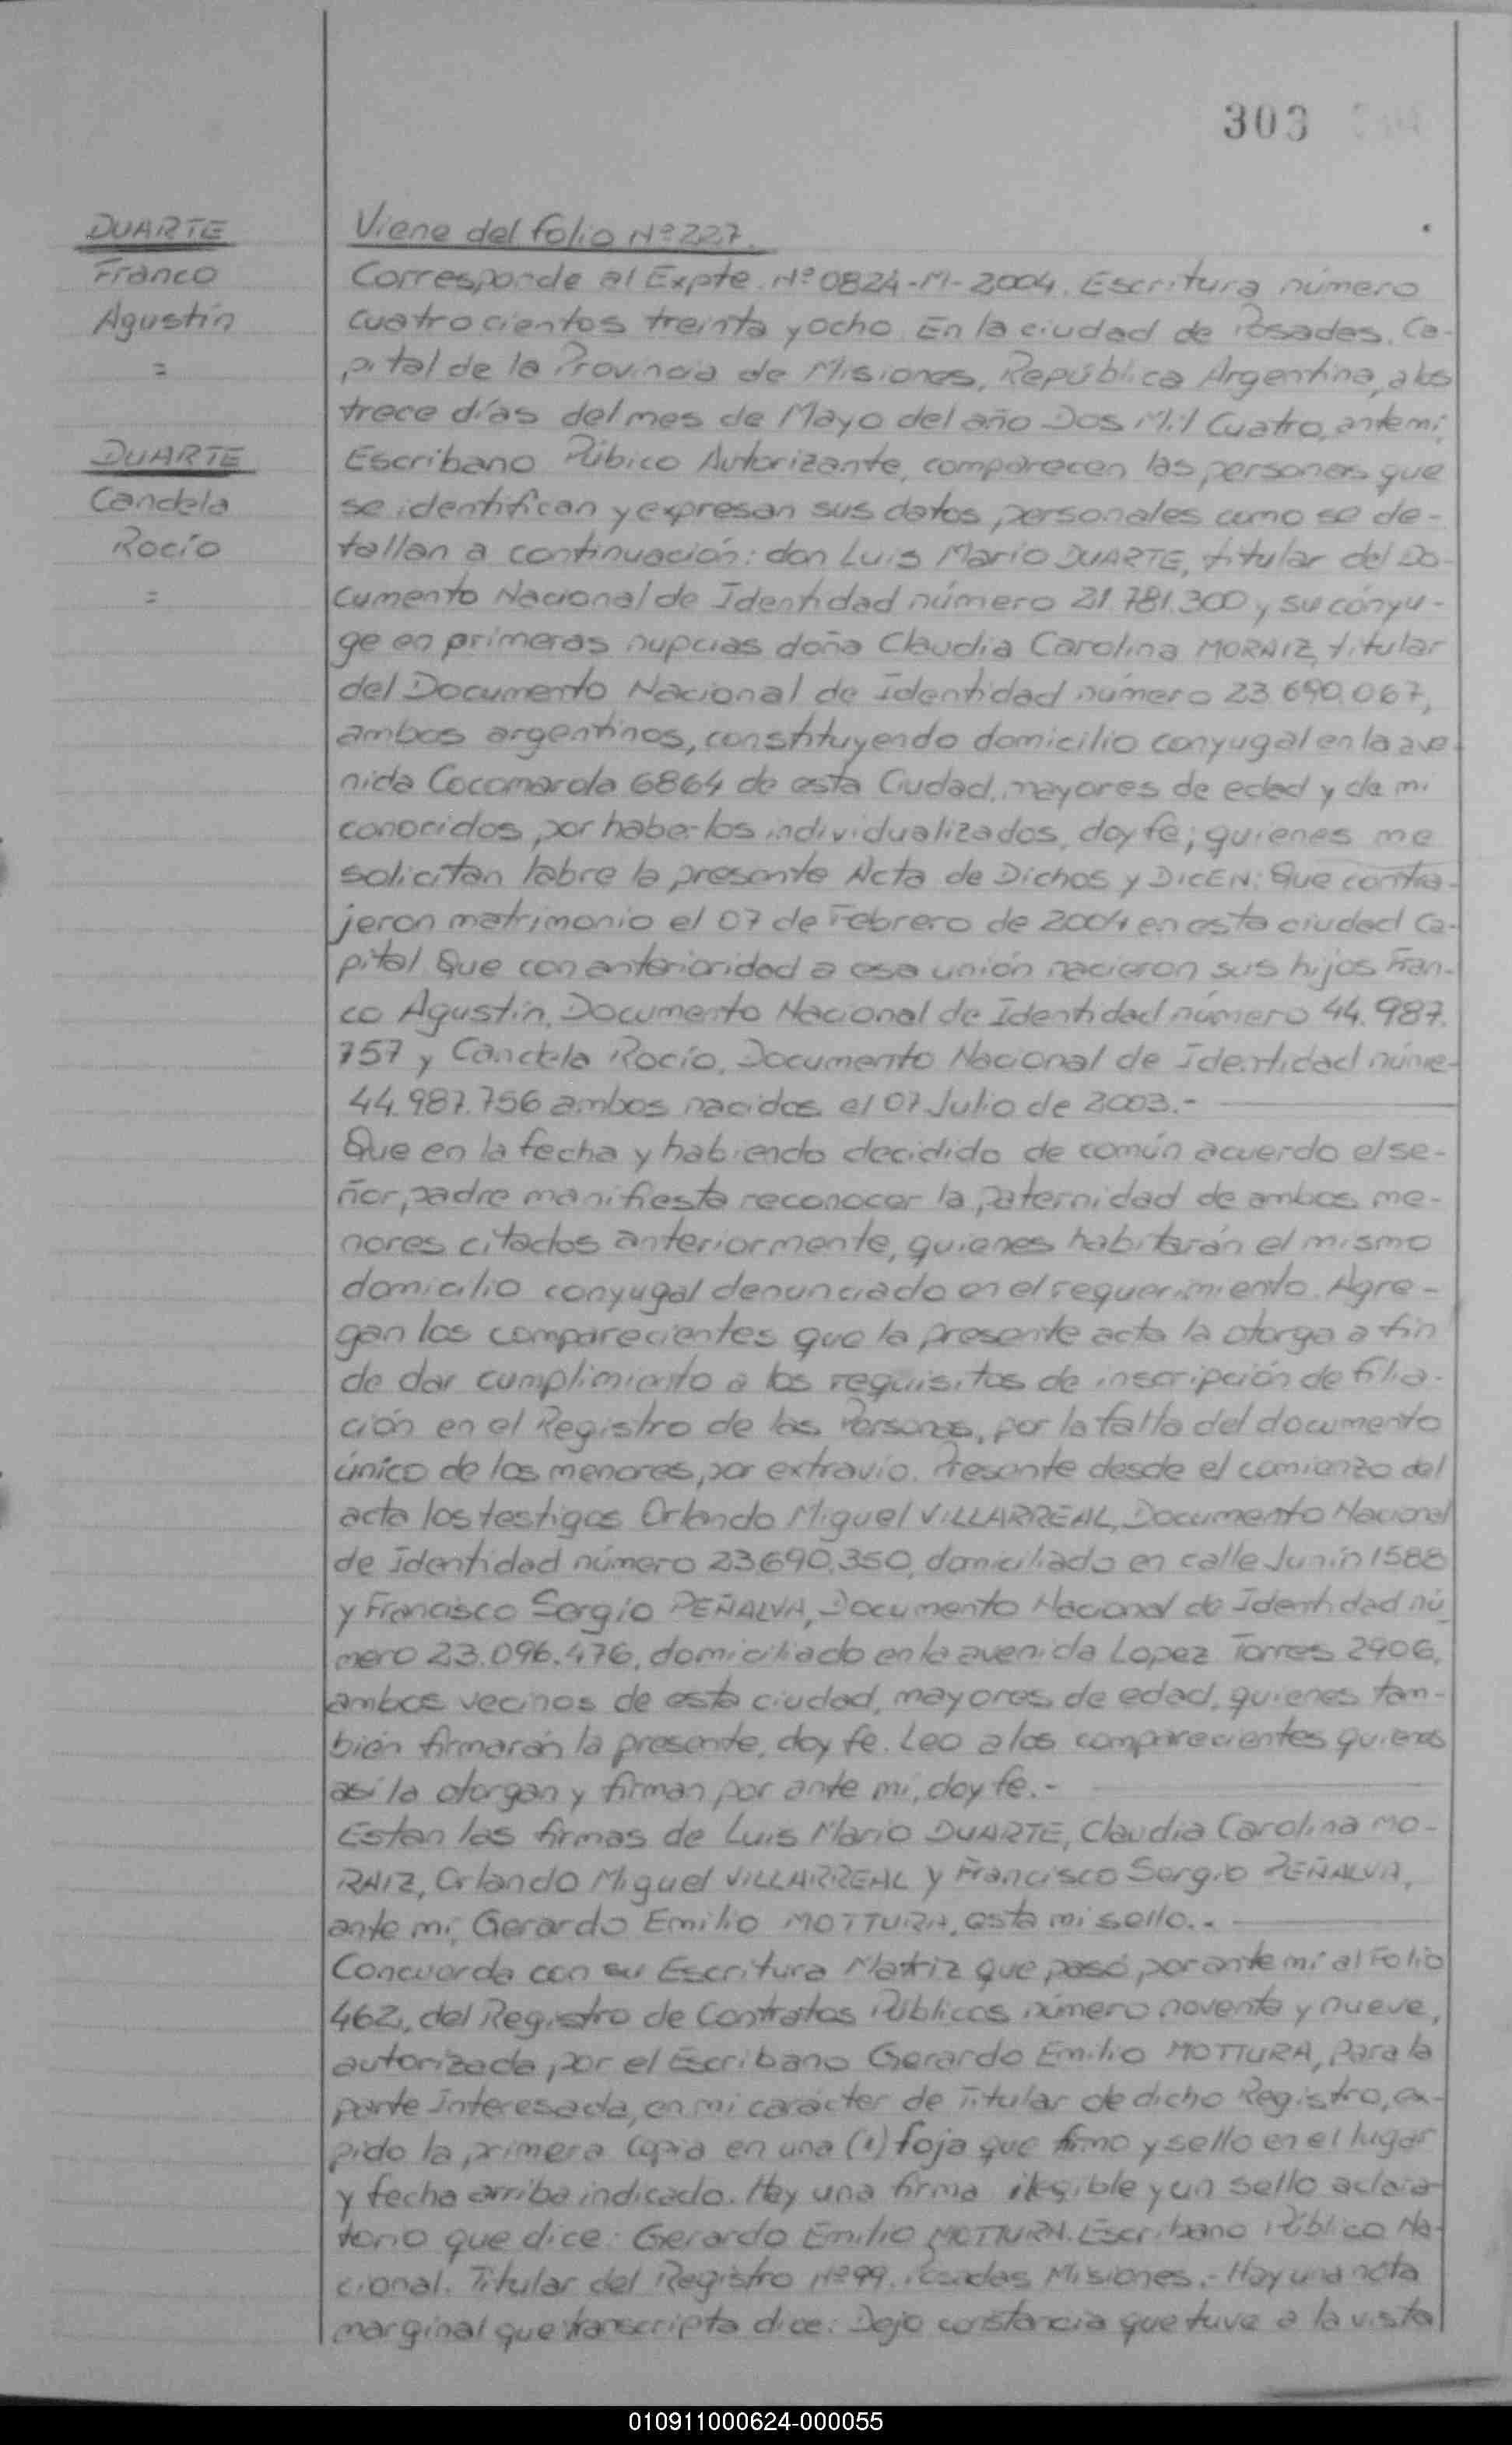 303
DUARTE
Franco
Agustín
=
DUARTE
Candela
Rocío
=
Viene del folio Nº 227.
Corresponde al Expte. Nº 0824-M-2004. Escritura número
cuatrocientos treinta y ocho. En la ciudad de Posadas, Ca-
pital de la Provincia de Misiones, República Argentina, a los
trece días del mes de Mayo del año Dos Mil Cuatro, ante mi,
Escribano Púbico Autorizante, comparecen las personas que
se identifican y expresan sus datos personales como se de-
tallan a continuación: don Luis Mario DUARTE, titular del Do-
cumento Nacional de Identidad número 21.781.300 y su cónyu-
ge en primeras nupcias doña Claudia Carolina MORAIZ, titular
del Documento Nacional de Identidad número 23.690.067,
ambos argentinos, constituyendo domicilio conyugal en la ave-
nida Cocomarola 6864 de esta Ciudad, mayores de edad y de mi
conocidos, por haberlos individualizados, doy fe; quienes me
solicitan labre la presente Acta de Dichos y DICEN: Que contra-
jeron matrimonio el 07 de Febrero de 2004 en esta ciudad Ca-
pital. Que con anterioridad a esa unión nacieron sus hijos Fran-
co Agustín, Documento Nacional de Identidad número 44.987.
757 y Candela Rocío, Documento Nacional de Identidad núme-
44.987.756 ambos nacidos el 07 Julio de 2003.-
Que en la fecha y habiendo decidido de común acuerdo el se-
ñor padre manifiesta reconocer la paternidad de ambos me-
nores citados anteriormente, quienes habitarán el mismo
domicilio conyugal denunciado en el requerimiento. Agre-
gan los comparecientes que la presente acta la otorga a fin
de dar cumplimiento a los requisitos de inscripción de filia-
ción en el Registro de las Personas, por la falta del documento
único de los menores, por extravío. Presente desde el comienzo del
acta los testigos Orlando Miguel VILLARREAL, Documento Nacional
de Identidad número 23.690.350, domiciliado en calle Junín 1588
y Francisco Sergio PEÑALVA, Documento Nacional de Identidad nú-
mero 23.096.476, domiciliado en la avenida Lopez Torres 2906,
ambos vecinos de esta ciudad, mayores de edad, quienes tam-
bién firmarán la presente, doy fe. Leo a los comparecientes quienes
así la otorgan y firman por ante mi, doy fe.-
Estan las firmas de Luis Mario DUARTE, Claudia Carolina MO-
RAIZ, Orlando Miguel VILLARREAL y Francisco Sergio PEÑALVA,
ante mi, Gerardo Emilio MOTTURA, esta mi sello.-
Concuerda con su Escritura Matriz que pasó por ante mí al Folio
462, del Registro de Contratos Públicos número noventa y nueve,
autorizada por el Escribano Gerardo Emilio MOTTURA, Para la
parte Interesada, en mi carácter de Titular de dicho Registro, ex-
pido la primera Copia en una (1) foja que firmo y sello en el lugar
y fecha arriba indicado. Hay una firma ilegible y un sello aclara-
torio que dice: Gerardo Emilio MOTTURA. Escribano Público Na-
cional. Titular del Registro Nº 99. Posadas Misiones.- Hay una nota
marginal que transcripta dice: Dejo constancia que tuve a la vista
010911000624-000055